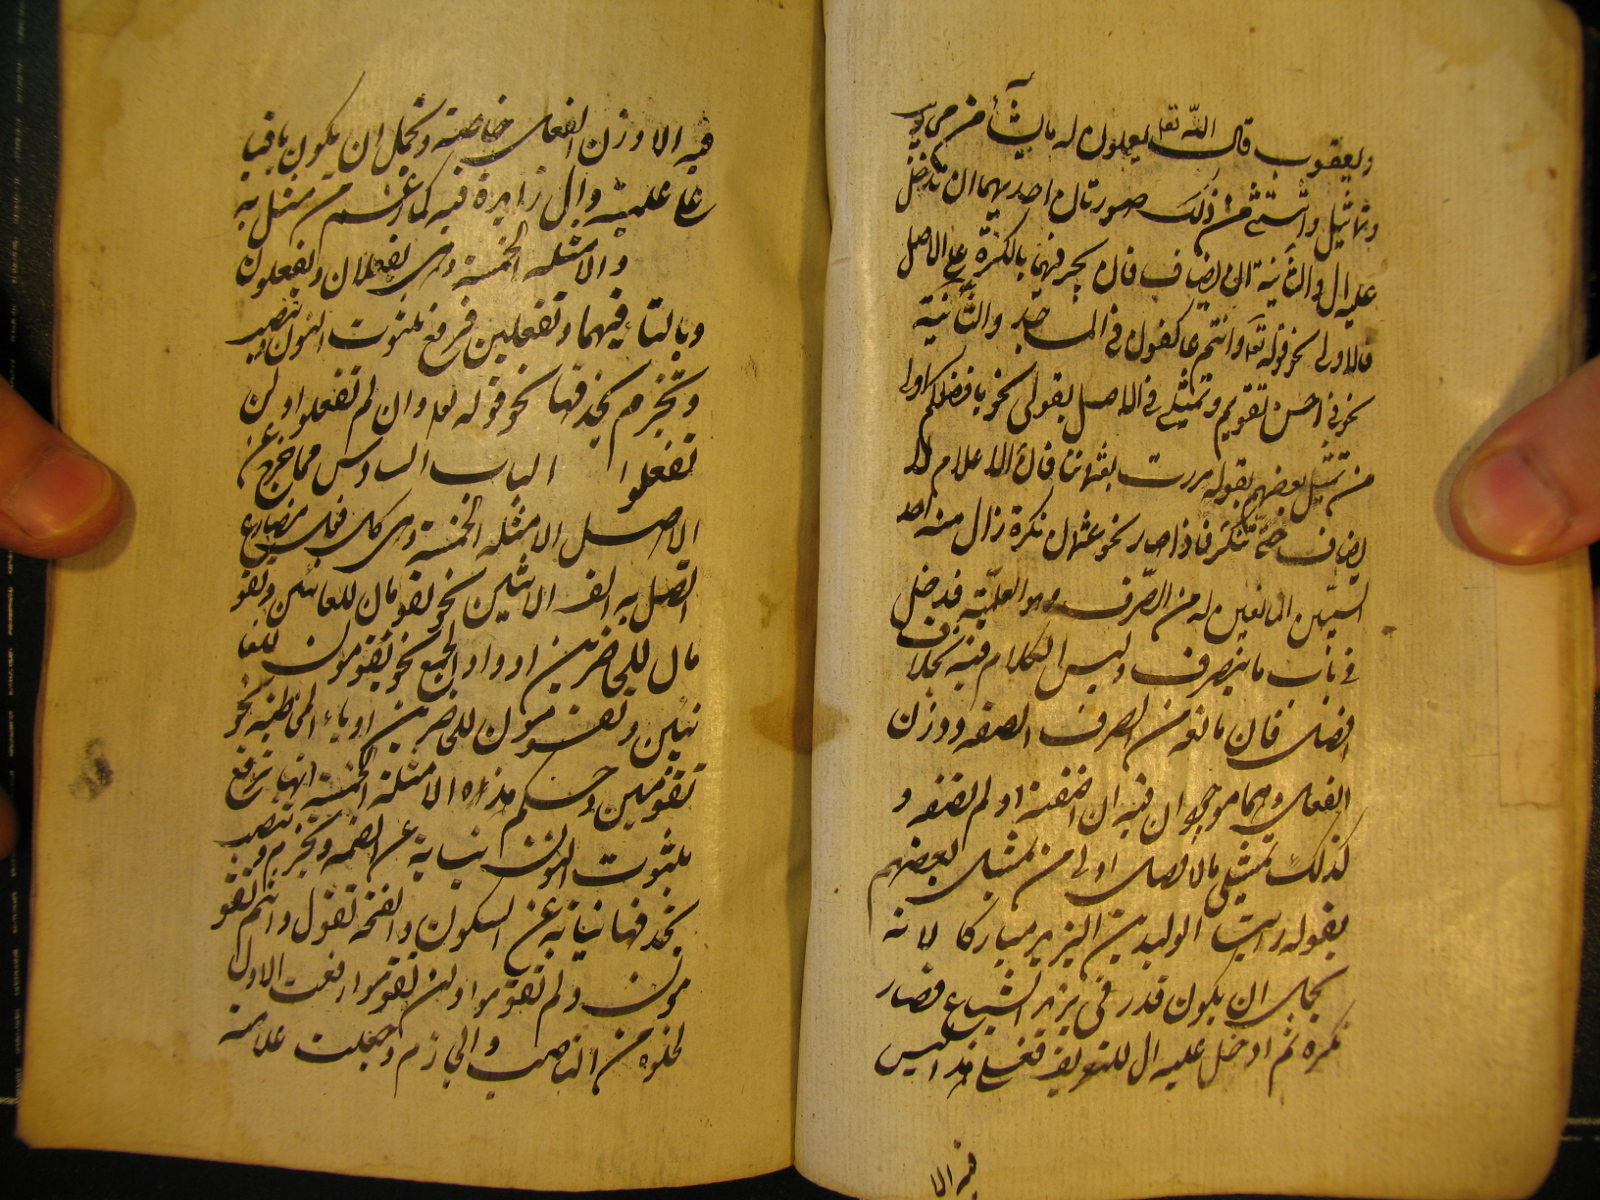 ويعقوب قال الله تعا يعملون له ما يشآء من محاريب
وتماثيل واستثنى من ذلك صورتان احديهما ان تدخل
عليه ال والثانية ان يضاف فان يجر فيهما بالكسرة على الاصل
فالاولى نحو قوله تعا وانتم عاكفون في المساجد والثانية
نحو في احسن تقويم وتمثيلى في الاصل بقولى نحو بافضلكم اولى
من تمثيل بعضهم بقوله مررت بعثماننا فان الاعلام لا
يضاف حتى تنكر فاذا صار نحو عثمان نكرة زال منه احد
السببين المانعين له من الصرف وهو العلمية فدخل
في باب ما ينصرف وليس الكلام فيه بخلاف
افضل فان مانعه من الصرف الصفه ووزن
الفعل وهما موجودان فيه ان اضفته او لم تضفه و
كذلك تمثيلى بالافضل اولى من تمثيل بعضهم
بقوله رايت الوليد بن اليزيد مباركا لانه
يحتمل ان يكون قدر في يزيد الشياع فصار
نكرة ثم ادخل عليه ال للتعريف فعلى هذا ليس
فيه الا
فيه الا وزن الفعل خاصة ويحتمل ان يكون باقيا
على علميته وال زايدة فيه كما زعم من مثل به
والامثلة الخمسة وهى يفعلان ويفعلون
وبالتاء فيهما وتفعلين فترفع بثبوت النون وتنصب
وتجزم بحذفها نحو قوله تعا فان لم تفعلوا ولن
تفعلوا الباب السادس مما خرج عن
الاصل الامثلة الخمسة وهى كل فعل مضارع
اتصل به الف الاثنين نحو يقومان للغائبين وتقو
مان للحاضرين او واو الجمع نحو يقومون للغا
ئبين وتقومون للحاضرين او ياء المخاطبة نحو
تقومين وحكم هذه الامثلة الخمسة انها ترفع
بثبوت النون نيابة عن الضمة وتجزم وتنصب
بحذفها نيابة عن السكون والفتحة تقول وانتم تقو
مون ولم تقوموا ولن تقوموا رفعت الاول
لخلوه من الناصب والجازم وجعلت علامة